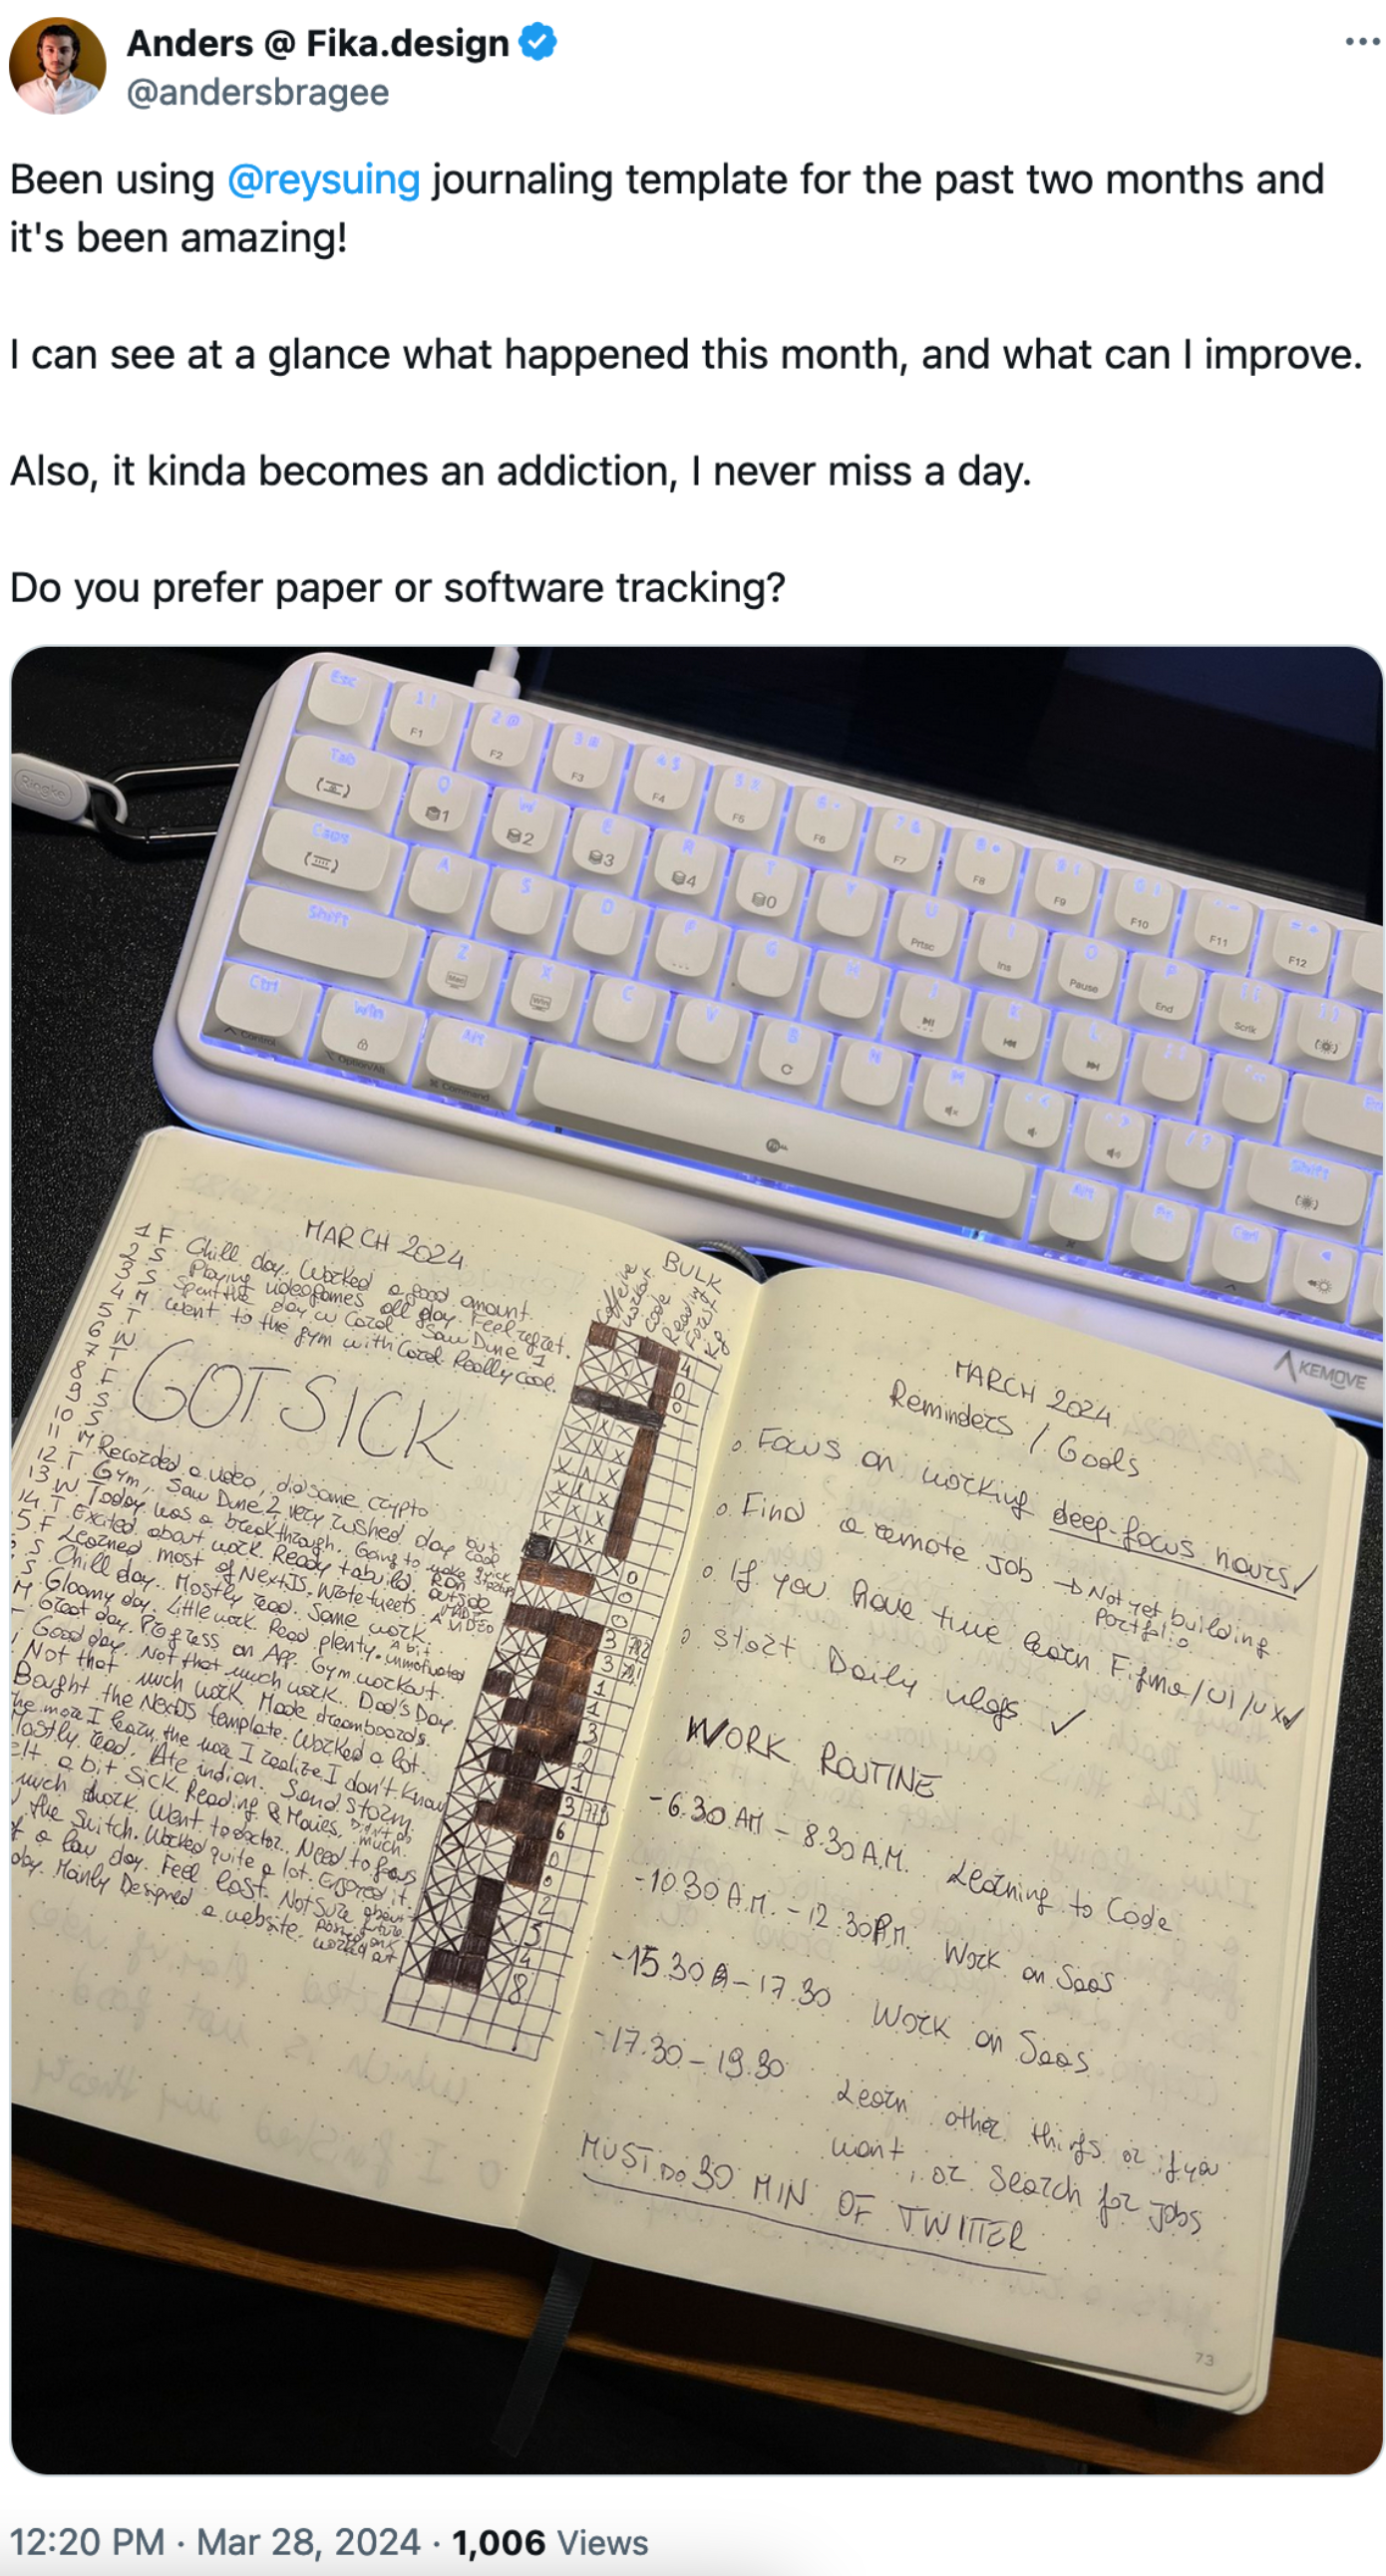 Anders @ Fika.design
@andersbragee
Been using @reysuing journaling template for the past two months and
it's been amazing!
I can see at a glance what happened this month, and what can I improve.
Also, it kinda becomes an addiction, I never miss a day.
Do you prefer paper or software tracking?
Ringke
Esc
F1
F2
F3
F4
F5
F6
F7
F8
F9
F10
F11
F12
Tab
Caps
Shift
Ctrl
Win
Alt
Prtsc
Ins
Pause
End
Scrlk
Control
Option/Alt
Command
KEMOVE
MARCH 2024
1 F Chill day. Worked a good amount.
2 S Playing videogames all day. Feel regret.
3 S Spent the day w Carol. Saw Dune 1
4 M Went to the gym with Carol. Really cool.
5 T
6 W
7 T
8 F
9 S
10 S
GOT SICK
11 M Recorded a video, did some crypto
12 T Gym, Saw Dune 2 very rushed day but cool
13 W Today was a breakthrough. Going to make quick startup
14 T Excited about work. Ready to build. Ran outside
5 F Learned most of NextJS. Wrote tweets. A video
S Chill day. Mostly read. Some work.
S Gloomy day. Little work. Read plenty. A bit unmotivated
M Great day. Progress on App. Gym workout.
Good day. Not that much work. Dad's Day.
Not that much work. Made dreamboards.
Bought the NextJS template. Worked a lot.
the more I learn, the more I realize I don't know
Mostly read. Ate indian. Sand storm.
elt a bit sick. Reading & Movies. Didn't do much.
much work. Went to doctor. Need to focus
the Switch. Worked quite a lot. Enjoyed it.
f a low day. Feel lost. Not sure about future
oby. Mainly Designed a website. worked out
BULK
Caffeine
Workout
Code
Reading
Kg
MARCH 2024
Reminders / Goals
Focus on working deep-focus hours ✓
Find a remote job → Not yet, building
Portfolio
If you have time learn Figma/UI/UX ✓
Start Daily vlogs ✓
WORK ROUTINE
- 6.30 AM - 8.30 A.M. Learning to Code
- 10.30 A.M. - 12.30 P.M. Work on SaaS
- 15.30 - 17.30 Work on Saas
- 17.30 - 19.30 Learn other things or if you
want, or Search for Jobs
MUST DO 30 MIN OF TWITTER
73
12:20 PM · Mar 28, 2024 · 1,006 Views